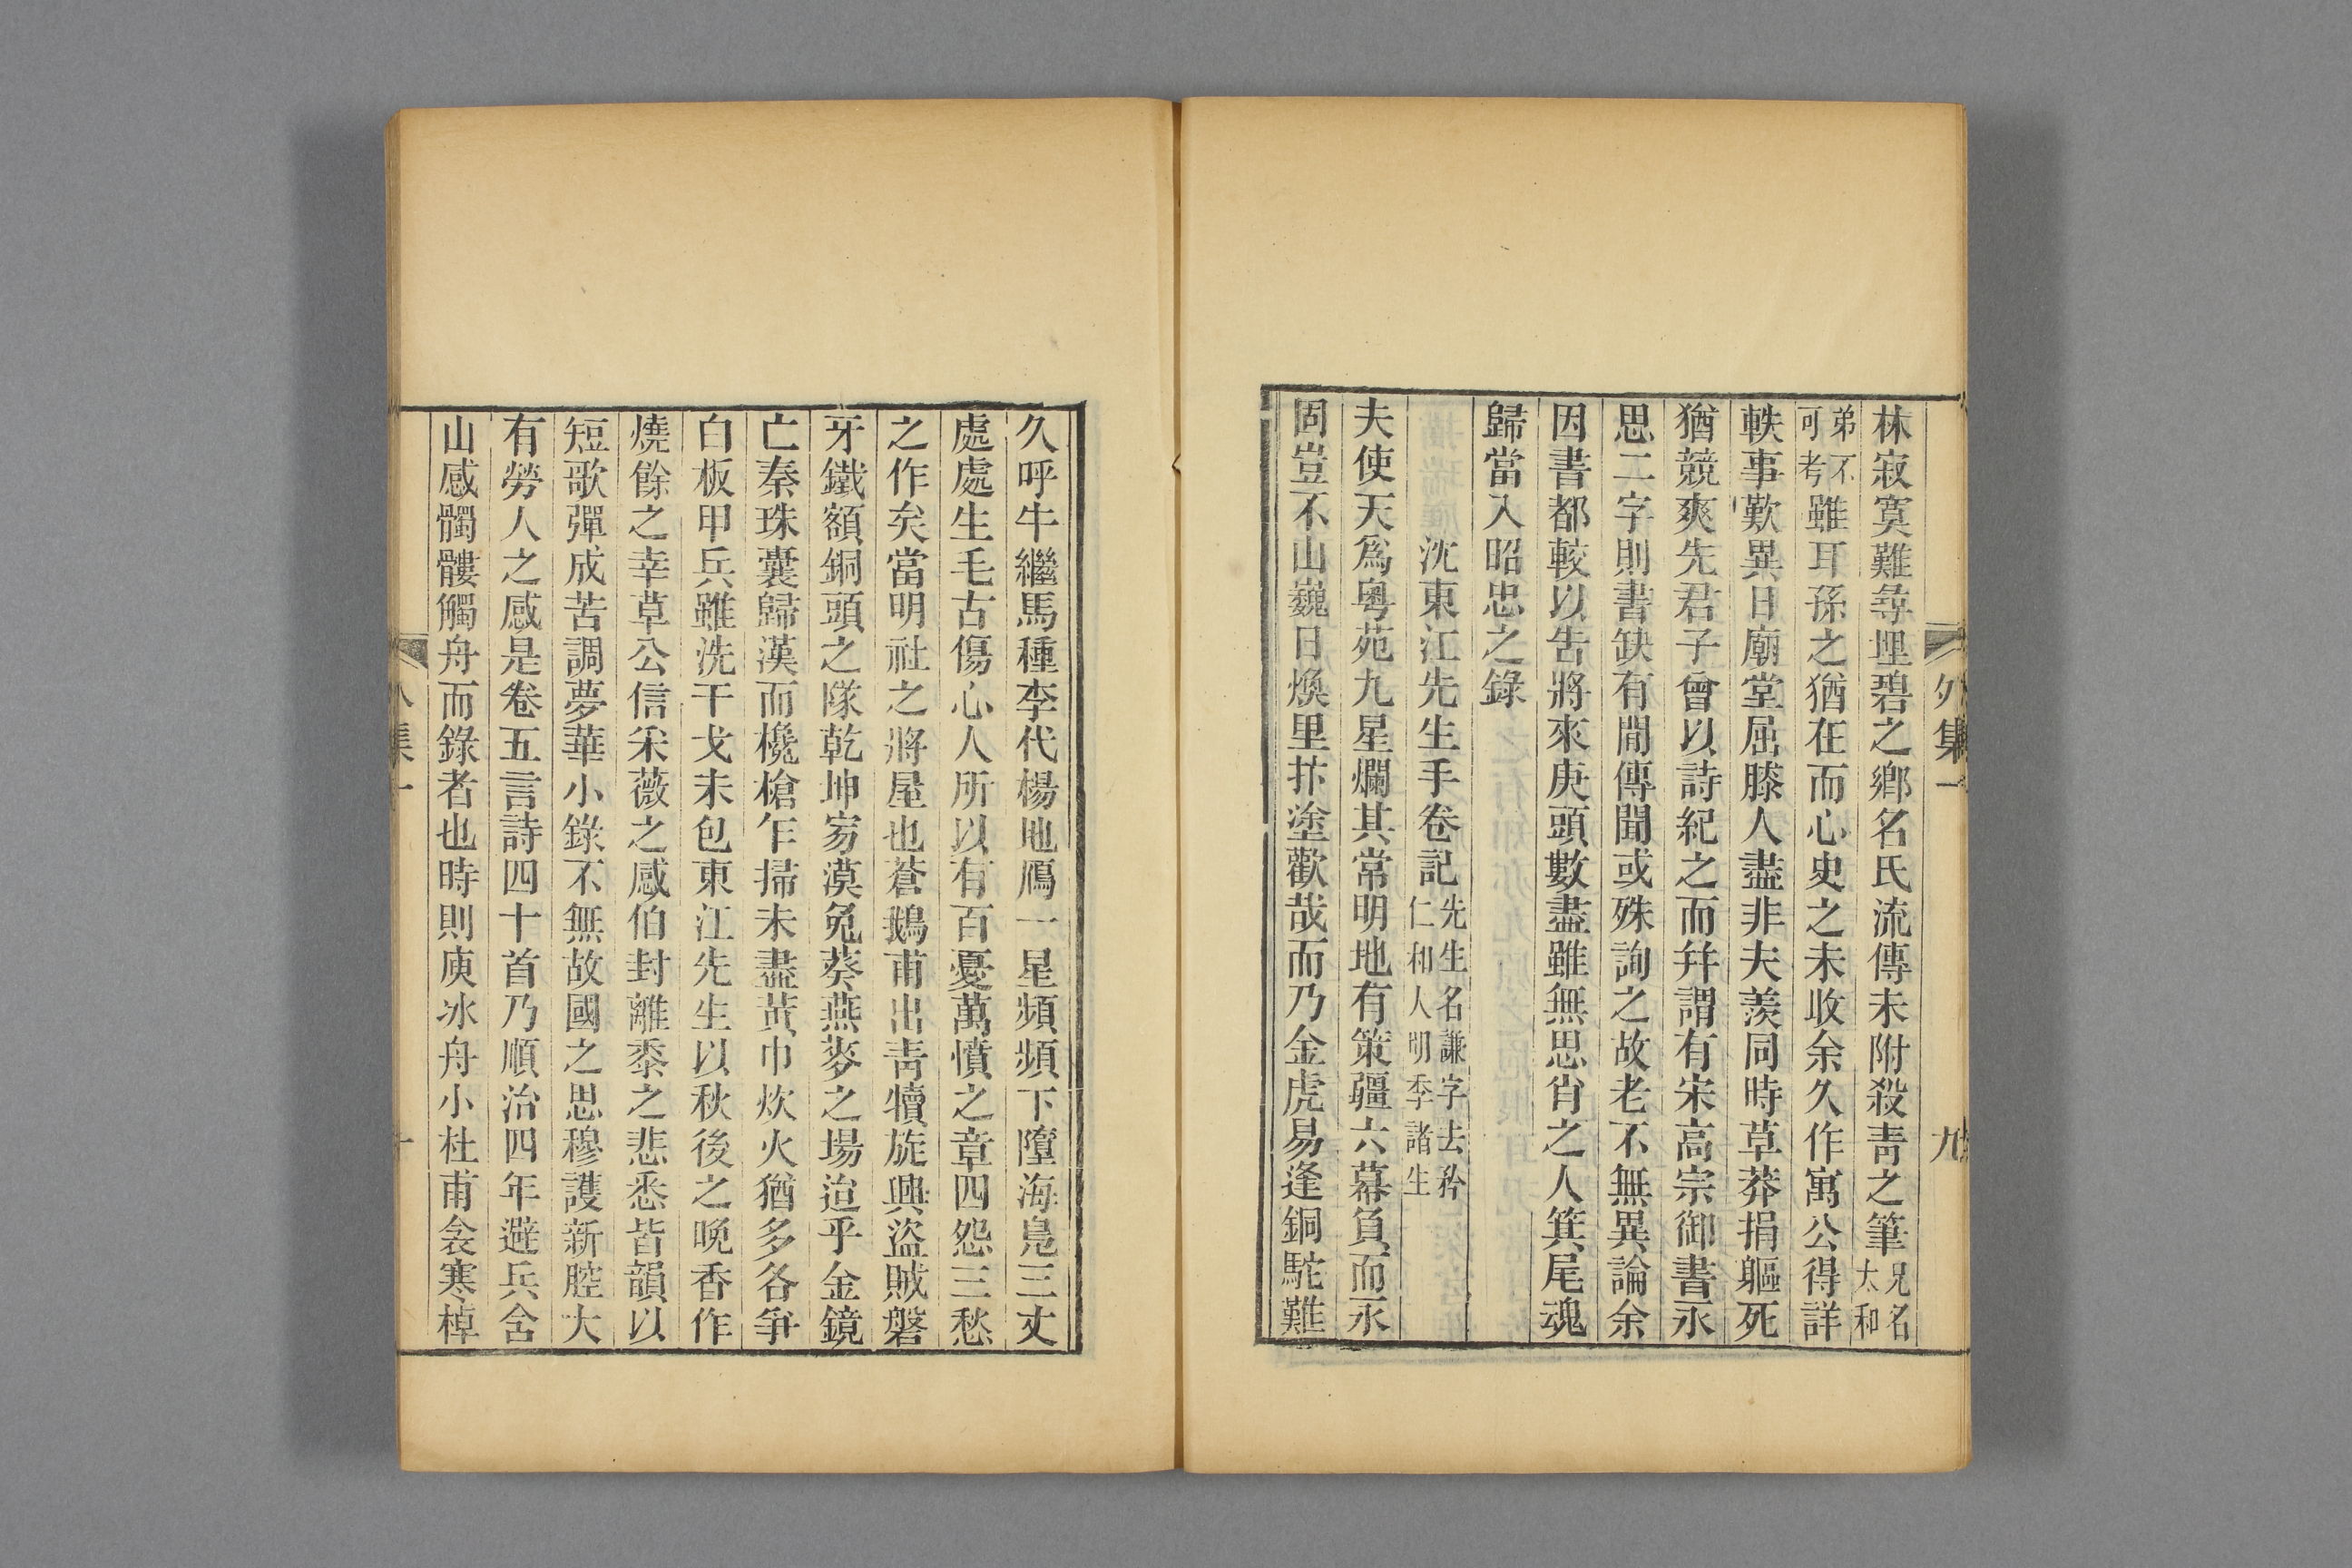 外集一
九
林寂寞難尋埋碧之鄉名氏流傳未附殺靑之筆兄名太和
弟不可考雖耳孫之猶在而心史之未收余久作寓公得詳
軼事歎異日廟堂屈膝人盡非夫羨同時草莽捐軀死
猶競爽先君子曾以詩紀之而幷謂有宋高宗御書永
思二字則書缺有間傳聞或殊詢之故老不無異論余
因書都較以吿將來庚頭數盡雖無思肖之人箕尾魂
歸當入昭忠之錄
沈東江先生手卷記先生名謙字去矜仁和人明季諸生
夫使天爲粵苑九星爛其常明地有策疆六幕負而永
固豈不山巍日煥里抃塗歡哉而乃金虎易逢銅駝難
久呼牛繼馬種李代楊地鴈一星頻頻下墮海鳧三丈
處處生毛古傷心人所以有百憂萬憤之章四怨三愁
之作矣當明社之將屋也蒼鵝甫出靑犢旋興盜賊磐
牙鐵額銅頭之隊乾坤㝑漠兔葵燕麥之場迨乎金鏡
亡秦珠囊歸漢而欃槍乍掃未盡黃巾炊火猶多各爭
白板甲兵雖洗干戈未包東江先生以秋後之晚香作
燒餘之幸草公信采薇之感伯封離黍之悲悉皆韻以
短歌彈成苦調夢華小錄不無故國之思穆護新腔大
有勞人之感是卷五言詩四十首乃順治四年避兵舍
山感髑髏觸舟而錄者也時則庾冰舟小杜甫衾寒棹
集一
十